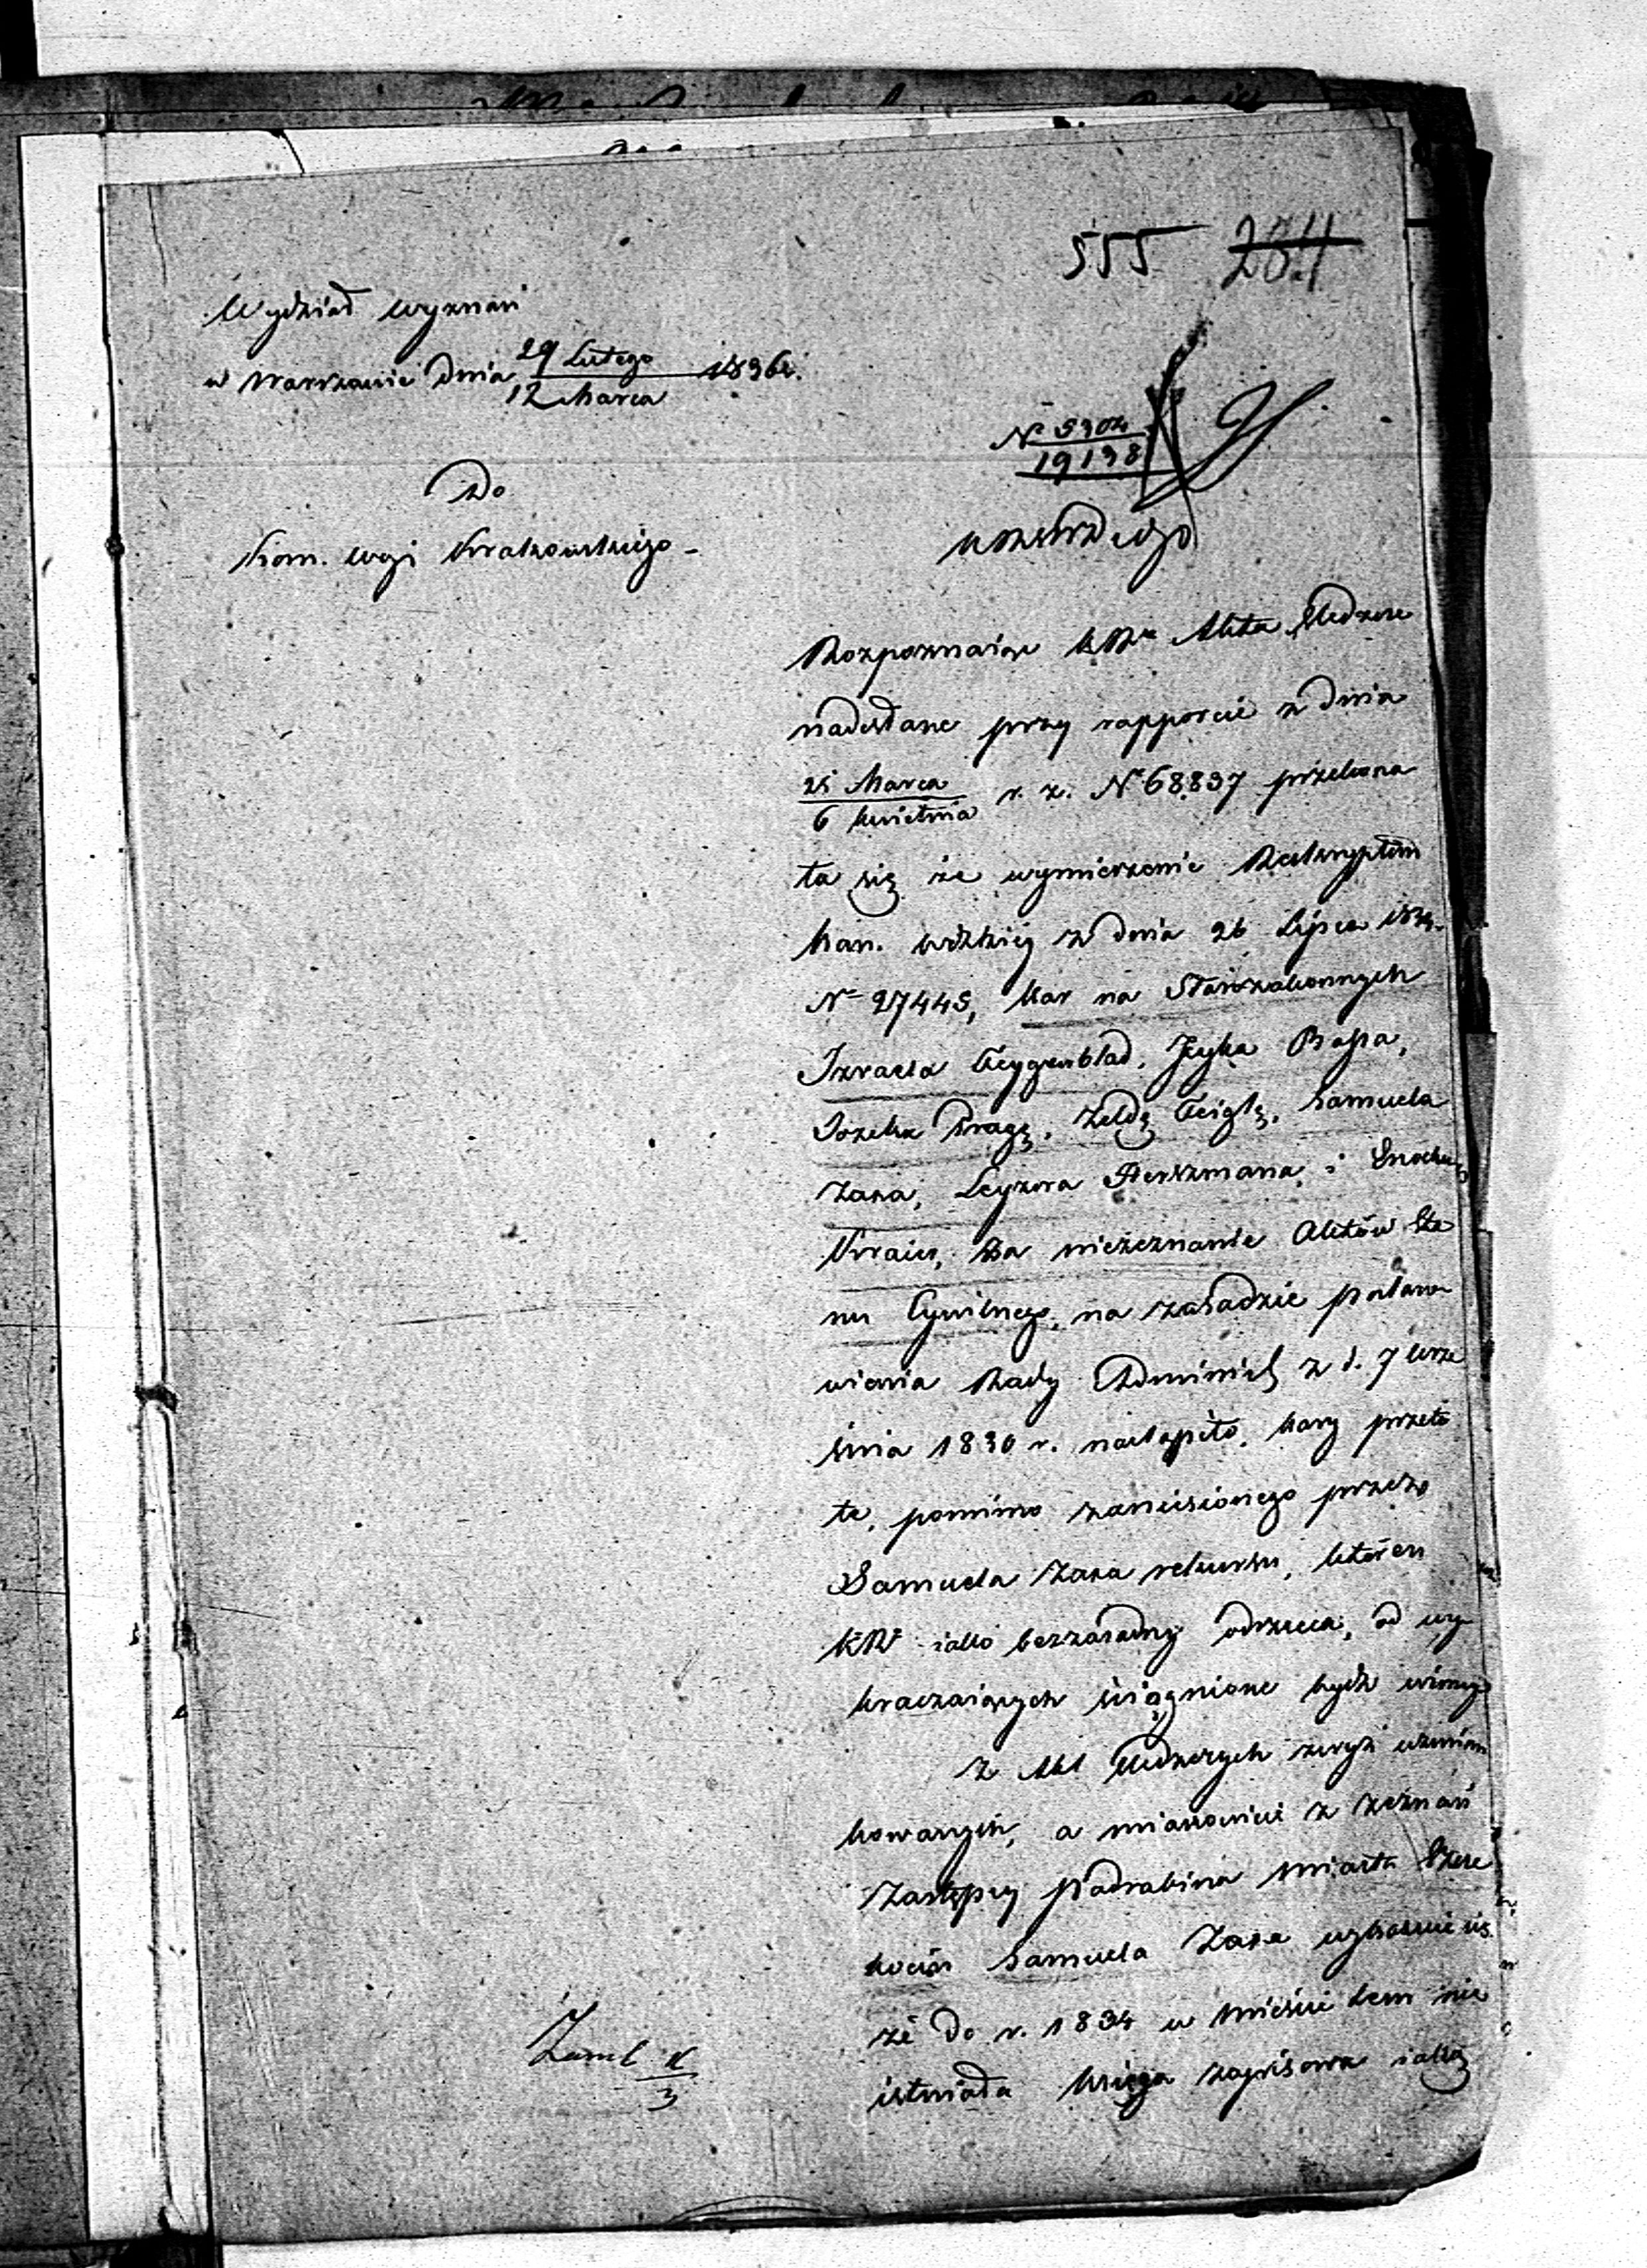 555 284
Wydział Wyznań
w Warszawie dnia 29 Lutego / 12 Marca 1836 r.
Nr 5302 / 19138
Do
Kom. Woje Krakowskiego -
Rozpoznaiąc KRz Akta Śledcze
nadesłane przy rapporcie z dnia
25 Marca / 6 Kwietnia r. z. Nr 68,837 przekona
ła się że wymierzenie Reskryptem
z dnia 26 Lipca
Nr 27445, kar na Starozakonnych
Izraela Feygenblad, Jcyka Bassa,
Joska Pragę, Zeldę Feiglę, Samuela
Zaxa, Leyzora Herszmana, i Enocha
za niezeznanie Aktów Sta
nu Cywilnego, na zasadzie postano
wienia Rady Administ z d. 7 Wrze
śnia 1830 r. nastąpiło, kary przeto
te, pomimo zaniesionego przez
Samuela Zaxa rekursu, który
KR iako bezzasadny odrzuca, od wy
kraczaiących ściągnione bydź winny
Z Akt śledczych zwyż wzmian
kowanych, a mianowicie z zeznań
Zastępcy Podrabina miasta
Samuela Zaxa wykazuie się
że do r. 1834 w mieście tem nie
istniała księga zapisowa iaką